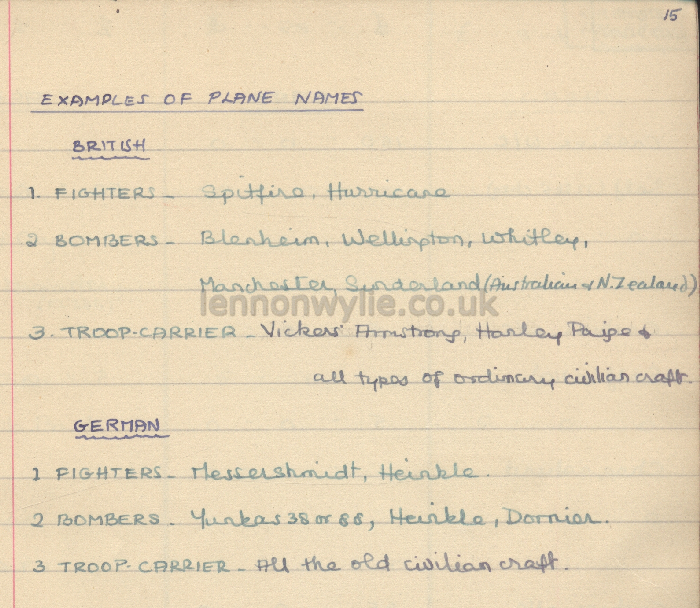 15
EXAMPLES OF PLANE NAMES
BRITISH
1. FIGHTERS - Spitfire, Hurricane
2 BOMBERS - Blenheim, Wellington, Whitley,
Manchester, Sunderland (Australian & N.Zealand)
lennonwylie.co.uk
3. TROOP-CARRIER - Vickers' Armstrong, Hanley Paige &
all types of ordinary civilian craft.
GERMAN
1 FIGHTERS - Messershmidt, Heinkle.
2 BOMBERS - Yunkas 38 or 88, Heinkle, Dornier.
3 TROOP-CARRIER - All the old civilian craft.